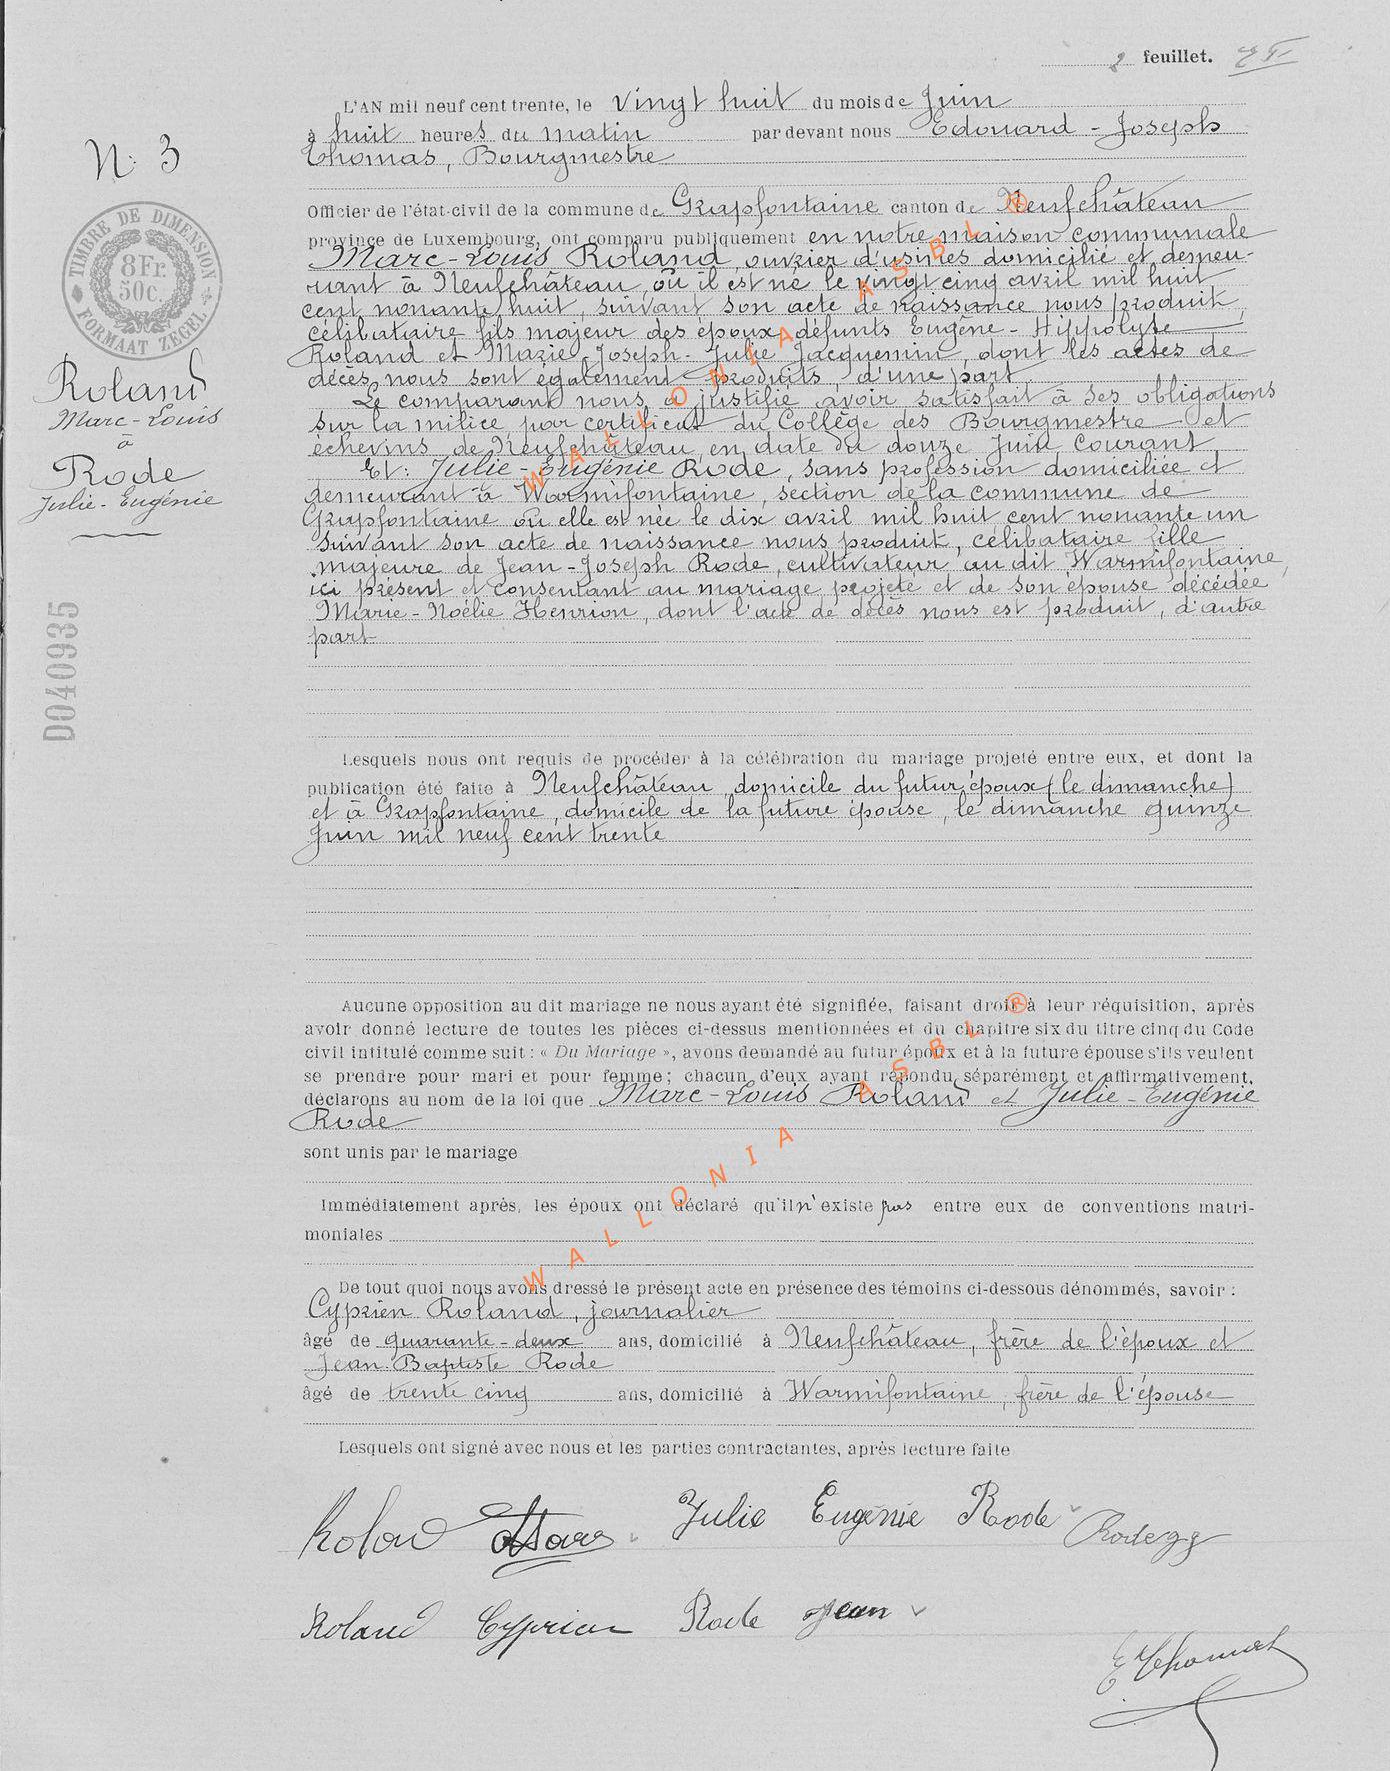 2 feuillet.
L'AN mil neuf cent trente, le vingt huit du mois de Juin
à huit heures du matin par devant nous Edouard - Joseph
Thomas, Bourgmestre
N: 3
Officier de l'état-civil de la commune de Grapfontaine canton de Neufchâteau
province de Luxembourg, ont comparu publiquement en notre maison communale
Marc-Louis Roland, ouvrier d'usines domicilié et demeu-
rant à Neufchâteau où il est né le vingt cinq avril mil huit
cent nonante huit, suivant son acte de naissance nous produit,
célibataire fils majeur des époux défunts Eugène - Hippolyte
Roland et Marie-Joseph-Julie Jacquemin, dont les actes de
décès nous sont également produits, d'une part,
Le comparant nous a justifié avoir satisfait à ses obligations
sur la milice par certificat du Collège des Bourgmestre et
échevins de Neufchâteau en date du douze Juin courant
Et: Julie-Eugénie Rode, sans profession domiciliée et
demeurant à Warmifontaine, section de la commune de
Grapfontaine où elle est née le dix avril mil huit cent nonante un
suivant son acte de naissance nous produit, célibataire fille
majeure de Jean-Joseph Rode, cultivateur au dit Warmifontaine,
ici présent et consentant au mariage projeté et de son épouse décédée
Marie-Noélie Henrion, dont l'acte de décès nous est produit, d'autre
part
TIMBRE DE DIMENSION
8Fr.
50c.
FORMAAT ZEGEL
Roland
Marc-Louis
à
Rode
Julie-Eugénie
D040935
Lesquels nous ont requis de procéder à la célébration du mariage projeté entre eux, et dont la
publication été faite à Neufchâteau domicile du futur époux (le dimanche)
et à Grapfontaine, domicile de la future épouse, le dimanche quinze
Juin mil neuf cent trente
Aucune opposition au dit mariage ne nous ayant été signifiée, faisant droit à leur réquisition, après
avoir donné lecture de toutes les pièces ci-dessus mentionnées et du chapitre six du titre cinq du Code
civil intitulé comme suit : « Du Mariage », avons demandé au futur époux et à la future épouse s'ils veulent
se prendre pour mari et pour femme ; chacun d'eux ayant répondu séparément et affirmativement,
déclarons au nom de la loi que Marc-Louis Roland et Julie-Eugénie
Rode
sont unis par le mariage
Immédiatement après, les époux ont déclaré qu'il n'existe pas entre eux de conventions matri-
moniales
De tout quoi nous avons dressé le présent acte en présence des témoins ci-dessous dénommés, savoir :
Cyprien Roland, journalier
âgé de quarante-deux ans, domicilié à Neufchâteau, frère de l'époux et
Jean-Baptiste Rode
âgé de trente cinq ans, domicilié à Warmifontaine, frère de l'épouse
Lesquels ont signé avec nous et les parties contractantes, après lecture faite
Roland Marc Julie Eugénie Rode
Roland Cyprien Rode Jean
E Thomas
WALLONIA ASBL ®
WALLONIA ASBL ®